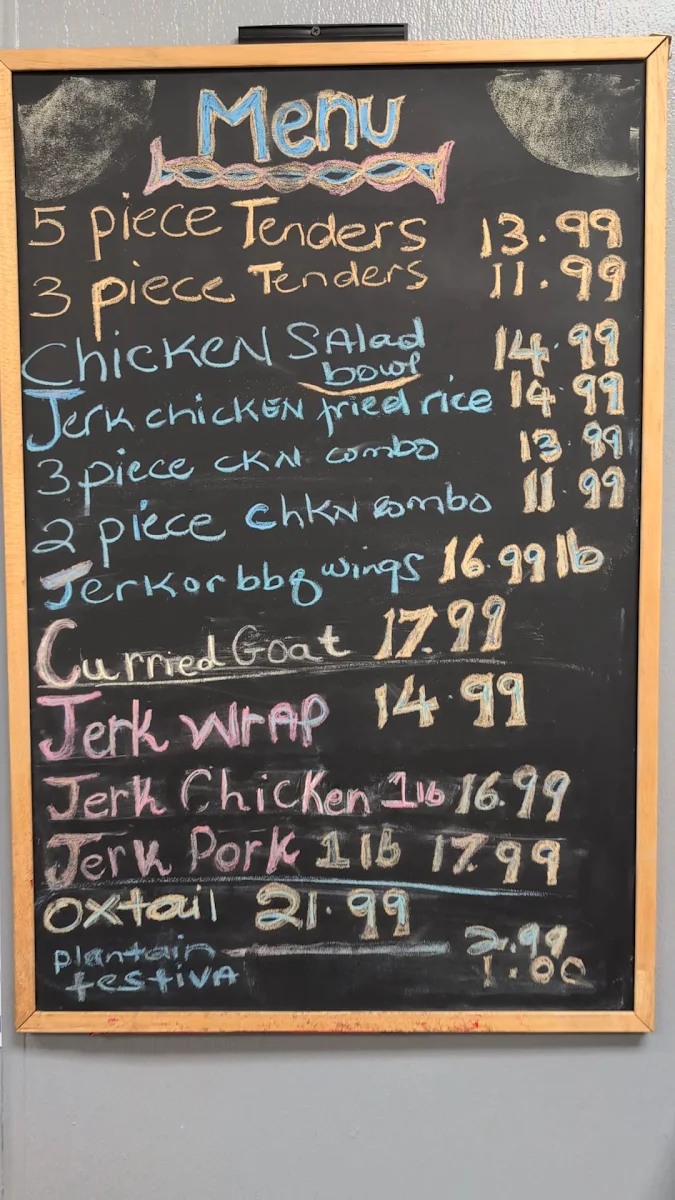 Menu
5 piece Tenders 13.99
3 piece Tenders 11.99
Chicken Salad 14.99
bowl
Jerk chicken fried rice 14.99
3 piece CKN combo 13.99
2 piece ChKN combo 11.99
Jerk or bbq wings 16.99 lb
Curried Goat 17.99
Jerk Wrap 14.99
Jerk Chicken 1 lb 16.99
Jerk Pork 1 lb 17.99
oxtail 21.99
plantain 2.99
festiva 1.00